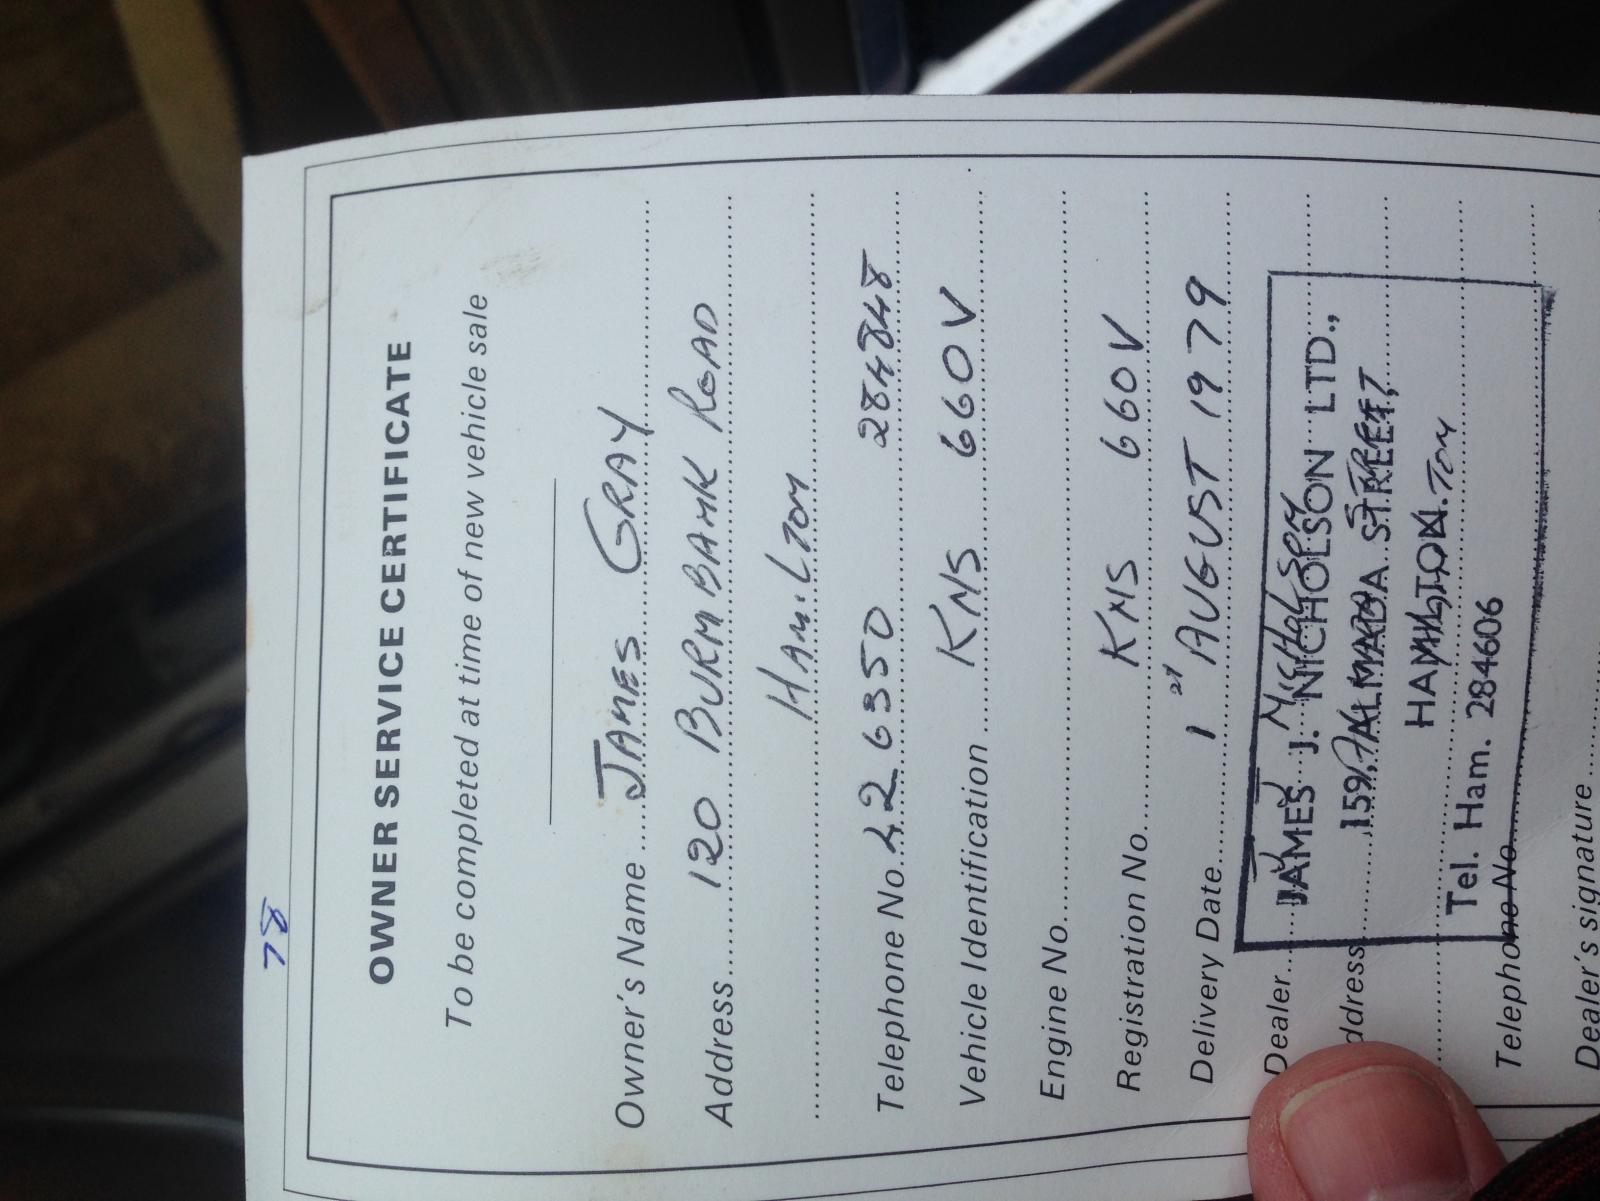 78
OWNER SERVICE CERTIFICATE
To be completed at time of new vehicle sale
Owner's Name JAMES GRAY
Address 120 BURNBANK ROAD
HAMILTON
Telephone No. 426350 284848
Vehicle Identification KNS 660V
Engine No.
Registration No. KNS 660V
Delivery Date 1 ST AUGUST 1979
Dealer JAMES J. NICHOLSON LTD.,
ddress 159, ALMADA STREET,
HAMILTON.
Tel. Ham. 284606
Telephone No.
Dealer's signature